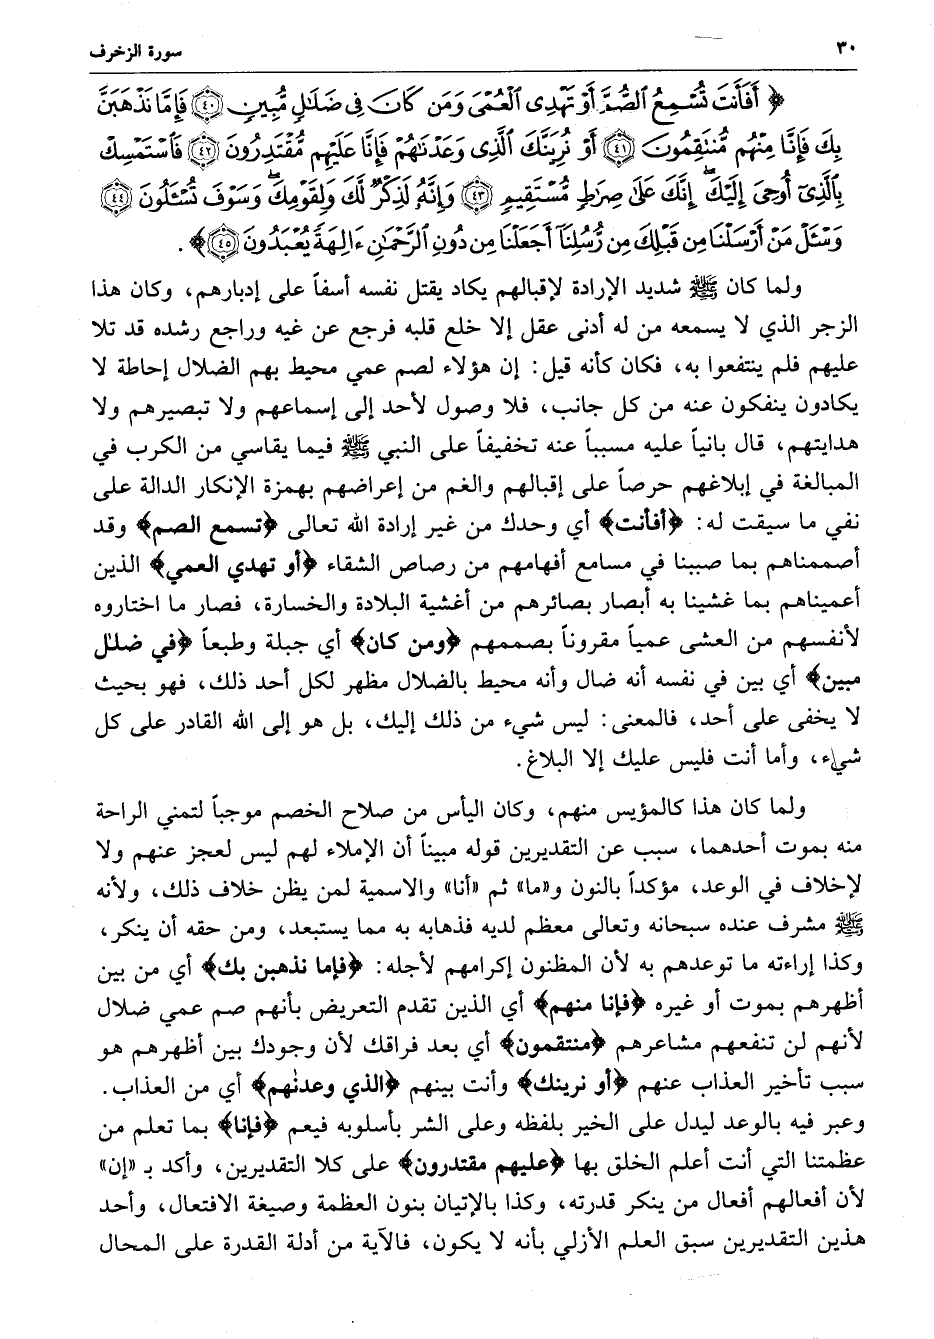 ٣٠ سورة الزخرف
﴿ أَفَأَنتَ تُسْمِعُ ٱلصُّمَّ أَوْ تَهْدِى ٱلْعُمْىَ وَمَن كَانَ فِى ضَلَٰلٍ مُّبِينٍ ﴿٤٠﴾ فَإِمَّا نَذْهَبَنَّ
بِكَ فَإِنَّا مِنْهُم مُّنتَقِمُونَ ﴿٤١﴾ أَوْ نُرِيَنَّكَ ٱلَّذِى وَعَدْنَٰهُمْ فَإِنَّا عَلَيْهِم مُّقْتَدِرُونَ ﴿٤٢﴾ فَٱسْتَمْسِكْ
بِٱلَّذِىٓ أُوحِىَ إِلَيْكَ ۖ إِنَّكَ عَلَىٰ صِرَٰطٍ مُّسْتَقِيمٍ ﴿٤٣﴾ وَإِنَّهُۥ لَذِكْرٌ لَّكَ وَلِقَوْمِكَ ۖ وَسَوْفَ تُسْـَٔلُونَ ﴿٤٤﴾
وَسْـَٔلْ مَنْ أَرْسَلْنَا مِن قَبْلِكَ مِن رُّسُلِنَآ أَجَعَلْنَا مِن دُونِ ٱلرَّحْمَٰنِ ءَالِهَةً يُعْبَدُونَ ﴿٤٥﴾ ﴾ .
ولما كان ﷺ شديد الإرادة لإقبالهم يكاد يقتل نفسه أسفاً على إدبارهم، وكان هذا
الزجر الذي لا يسمعه من له أدنى عقل إلا خلع قلبه فرجع عن غيه وراجع رشده قد تلا
عليهم فلم ينتفعوا به، فكان كأنه قيل: إن هؤلاء لصم عمي محيط بهم الضلال إحاطة لا
يكادون ينفكون عنه من كل جانب، فلا وصول لأحد إلى إسماعهم ولا تبصيرهم ولا
هدايتهم، قال بانياً عليه مسبباً عنه تخفيفاً على النبي ﷺ فيما يقاسي من الكرب في
المبالغة في إبلاغهم حرصاً على إقبالهم والغم من إعراضهم بهمزة الإنكار الدالة على
نفي ما سيقت له: ﴿أفأنت﴾ أي وحدك من غير إرادة الله تعالى ﴿تسمع الصم﴾ وقد
أصممناهم بما صببنا في مسامع أفهامهم من رصاص الشقاء ﴿أو تهدي العمي﴾ الذين
أعميناهم بما غشينا به أبصار بصائرهم من أغشية البلادة والخسارة، فصار ما اختاروه
لأنفسهم من العشى عمياً مقروناً بصممهم ﴿ومن كان﴾ أي جبلة وطبعاً ﴿في ضلٰل
مبين﴾ أي بين في نفسه أنه ضال وأنه محيط بالضلال مظهر لكل أحد ذلك، فهو بحيث
لا يخفى على أحد، فالمعنى: ليس شيء من ذلك إليك، بل هو إلى الله القادر على كل
شيء، وأما أنت فليس عليك إلا البلاغ.
ولما كان هذا كالمؤيس منهم، وكان اليأس من صلاح الخصم موجباً لتمني الراحة
منه بموت أحدهما، سبب عن التقديرين قوله مبيناً أن الإملاء لهم ليس لعجز عنهم ولا
لإخلاف في الوعد، مؤكداً بالنون و«ما» ثم «أنا» والاسمية لمن يظن خلاف ذلك، ولأنه
ﷺ مشرف عنده سبحانه وتعالى معظم لديه فذهابه به مما يستبعد، ومن حقه أن ينكر،
وكذا إراءته ما توعدهم به لأن المظنون إكرامهم لأجله: ﴿فإما نذهبن بك﴾ أي من بين
أظهرهم بموت أو غيره ﴿فإنا منهم﴾ أي الذين تقدم التعريض بأنهم صم عمي ضلال
لأنهم لن تنفعهم مشاعرهم ﴿منتقمون﴾ أي بعد فراقك لأن وجودك بين أظهرهم هو
سبب تأخير العذاب عنهم ﴿أو نرينك﴾ وأنت بينهم ﴿الذي وعدنٰهم﴾ أي من العذاب.
وعبر فيه بالوعد ليدل على الخير بلفظه وعلى الشر بأسلوبه فيعم ﴿فإنا﴾ بما تعلم من
عظمتنا التي أنت أعلم الخلق بها ﴿عليهم مقتدرون﴾ على كلا التقديرين، وأكد بـ «إن»
لأن أفعالهم أفعال من ينكر قدرته، وكذا بالإتيان بنون العظمة وصيغة الافتعال، وأحد
هذين التقديرين سبق العلم الأزلي بأنه لا يكون، فالآية من أدلة القدرة على المحال